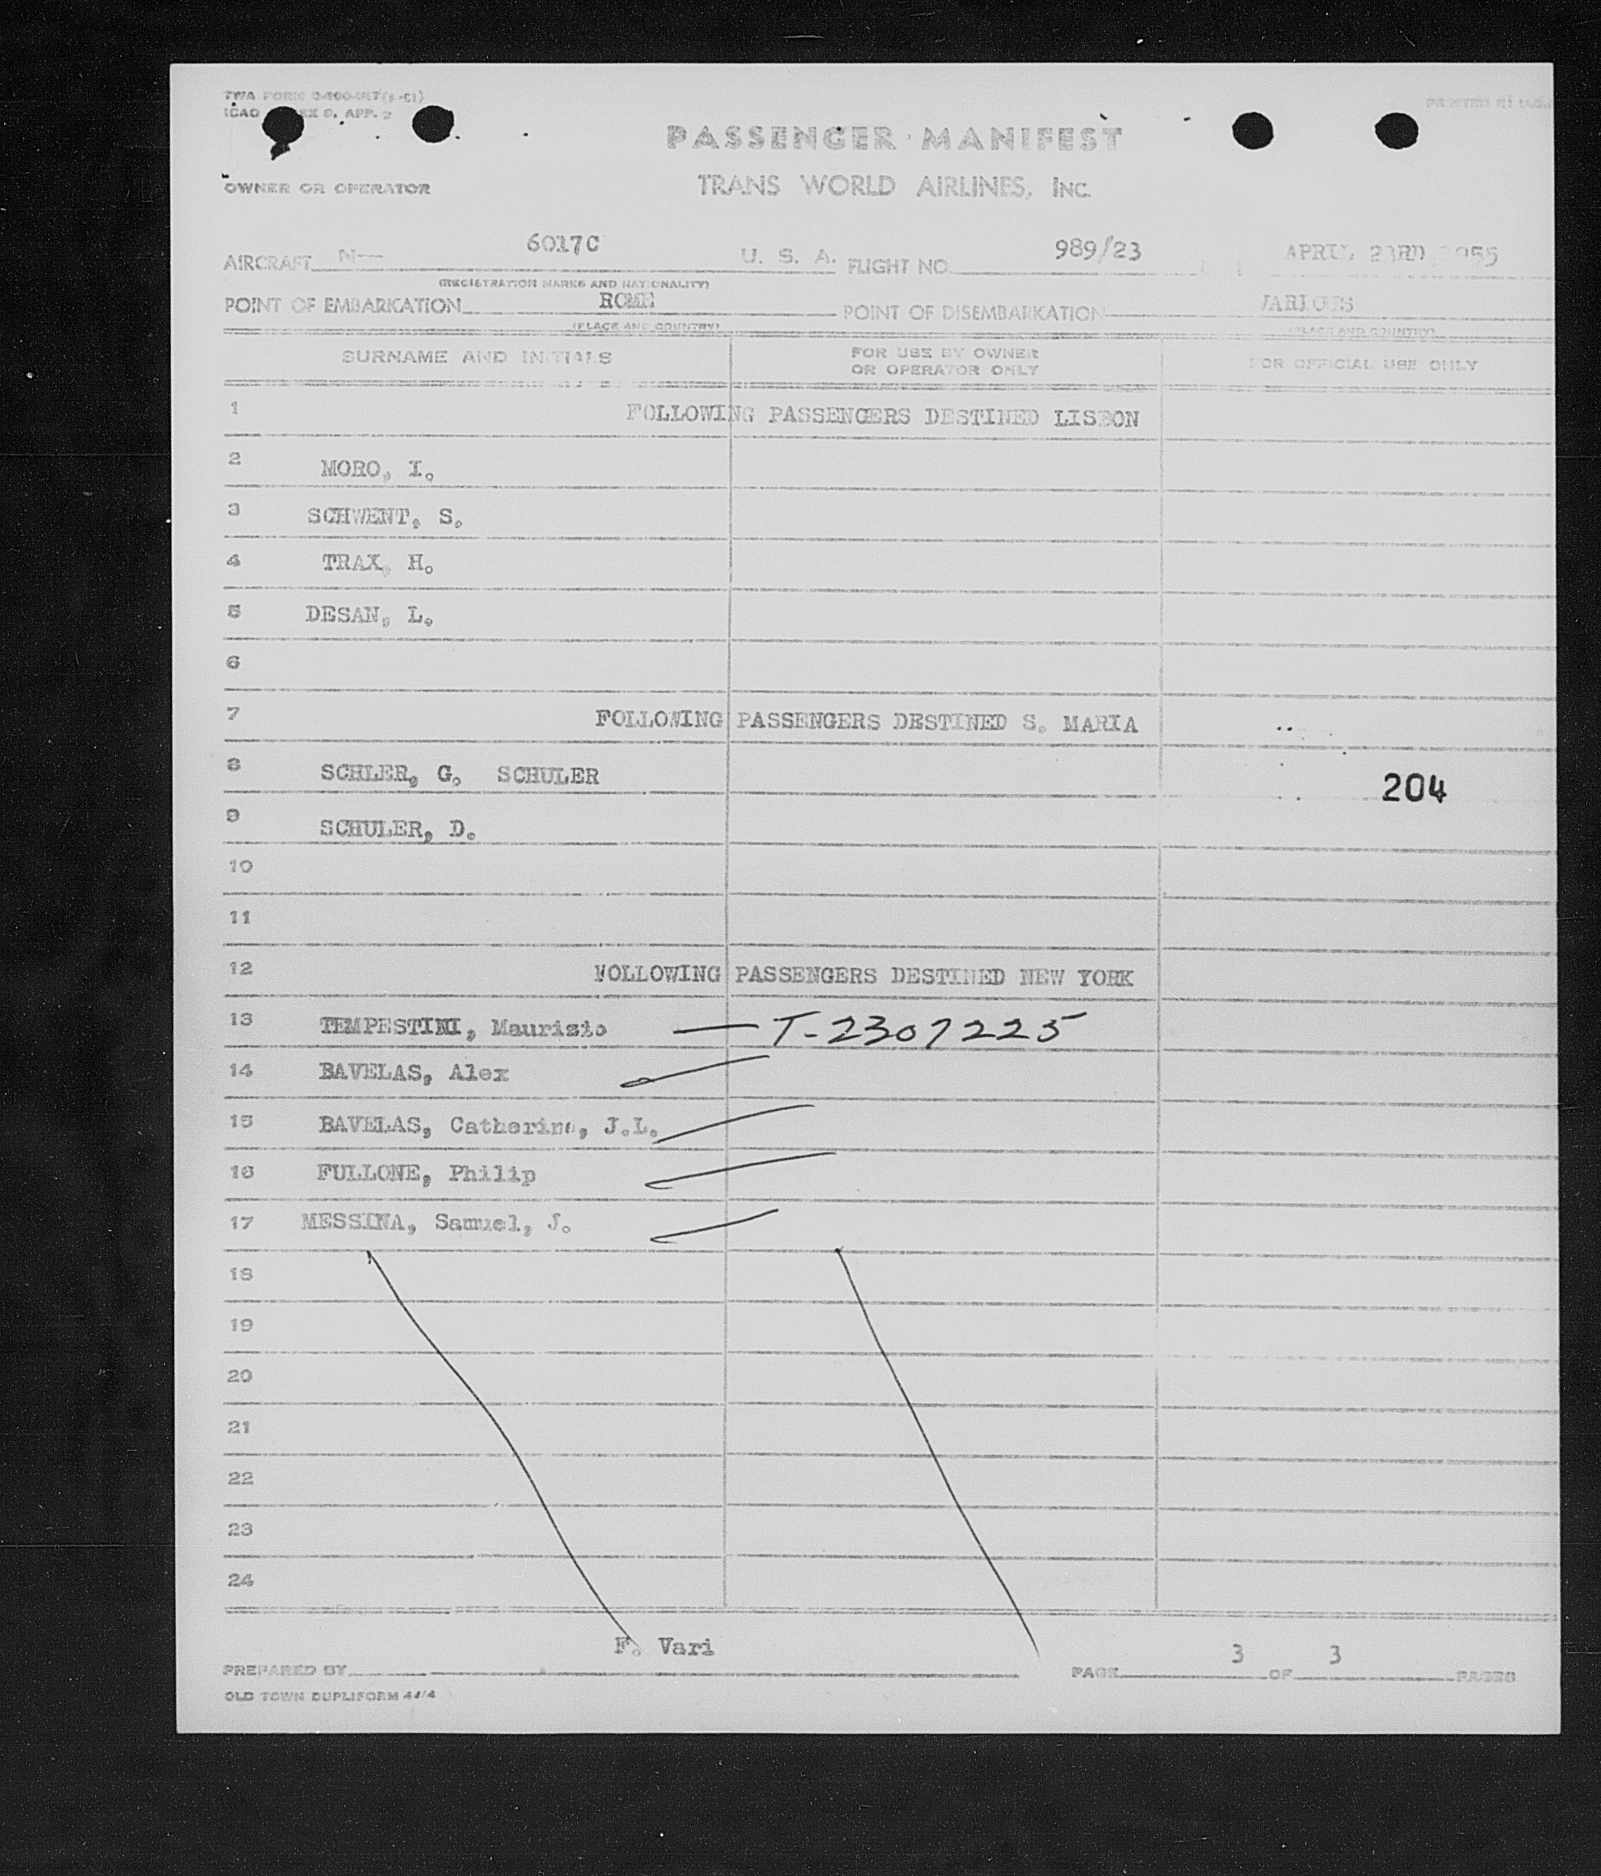 TWA FORM
ICAO APP. 2
PASSENGER MANIFEST
OWNER OR OPERATOR
TRANS WORLD AIRLINES, INC.
AIRCRAFT N— 6017C U. S. A. FLIGHT NO. 989/23 APRIL 23RD 1955
(REGISTRATION MARKS AND NATIONALITY)
POINT OF EMBARKATION ROME POINT OF DISEMBARKATION VARIOUS
(PLACE AND COUNTRY) (PLACE AND COUNTRY)
SURNAME AND INITIALS FOR USE BY OWNER OR OPERATOR ONLY FOR OFFICIAL USE ONLY
1 FOLLOWING PASSENGERS DESTINED LISBON
2 MORO, I.
3 SCHWENT, S.
4 TRAX, H.
5 DESAN, L.
6
7 FOLLOWING PASSENGERS DESTINED S. MARIA
8 SCHLER, G. SCHULER
204
9 SCHULER, D.
10
11
12 FOLLOWING PASSENGERS DESTINED NEW YORK
13 TEMPESTINI, Maurizio — T-2307225
14 BAVELAS, Alex
15 BAVELAS, Catherine, J.L.
16 FULLONE, Philip
17 MESSINA, Samuel, J.
18
19
20
21
22
23
24
PREPARED BY F. Vari PAGE 3 OF 3 PAGES
OLD TOWN DUPLIFORM